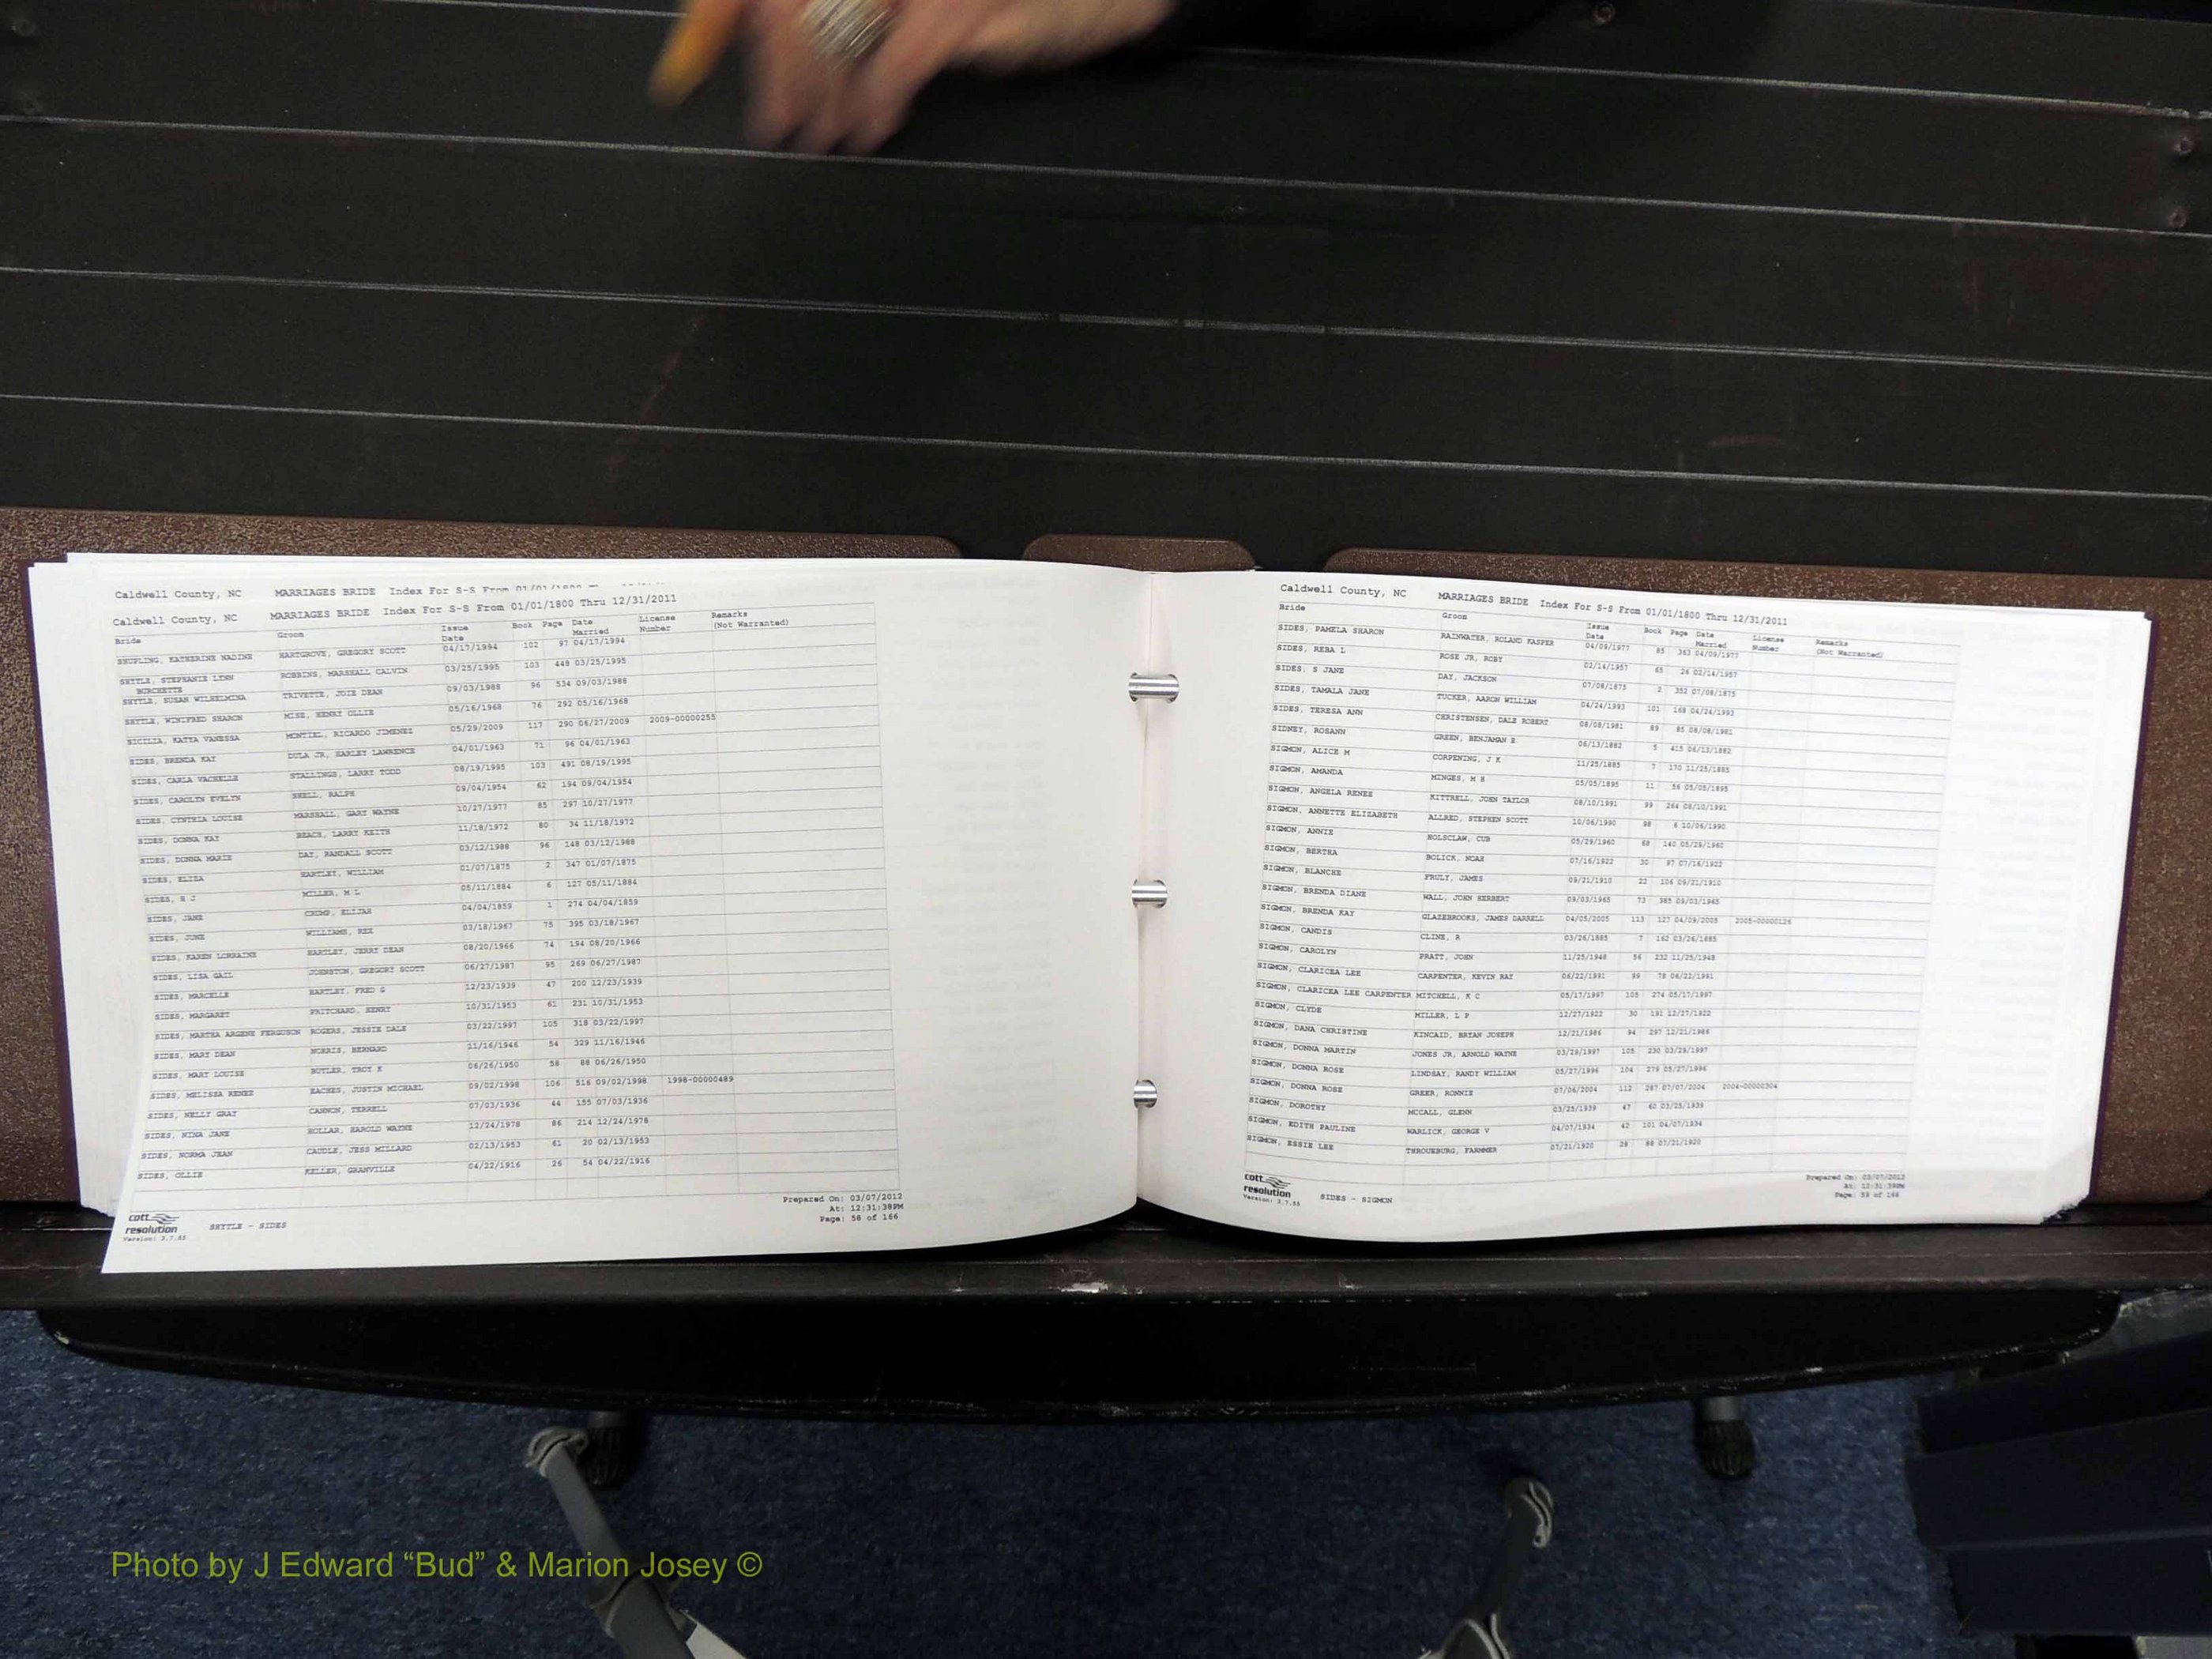 Caldwell County, NC MARRIAGES BRIDE Index For S-S From 01/01/1800
Caldwell County, NC MARRIAGES BRIDE Index For S-S From 01/01/1800 Thru 12/31/2011
Bride Groom Issue Date Book Page Date Married License Number Remarks (Not Warranted)
SHUPLING, KATHERINE NADINE HARTGROVE, GREGORY SCOTT 04/17/1994 102 97 04/17/1994
SHYTLE, STEPHANIE LYNN ROBBINS, MARSHALL CALVIN 03/25/1995 103 448 03/25/1995
BURCHETTE
SHYTLE, SUSAN WILHELMINA TRIVETTE, JOIE DEAN 09/03/1988 96 534 09/03/1988
SHYTLE, WINIFRED SHARON MISE, HENRY OLLIE 05/16/1968 76 292 05/16/1968
SICILIA, KATYA VANESSA MONTIEL, RICARDO JIMENEZ 05/29/2009 117 290 06/27/2009 2009-00000255
SIDES, BRENDA KAY DULA JR, HARLEY LAWRENCE 04/01/1963 71 96 04/01/1963
SIDES, CARLA VACHELLE STALLINGS, LARRY TODD 08/19/1995 103 491 08/19/1995
SIDES, CAROLYN EVELYN SNELL, RALPH 09/04/1954 62 194 09/04/1954
SIDES, CYNTHIA LOUISE MARSHALL, GARY WAYNE 10/27/1977 85 297 10/27/1977
SIDES, DONNA KAY BEACH, LARRY KEITH 11/18/1972 80 34 11/18/1972
SIDES, DONNA MARIE DAY, RANDALL SCOTT 03/12/1988 96 148 03/12/1988
SIDES, ELIZA HARTLEY, WILLIAM 01/07/1875 2 347 01/07/1875
SIDES, S J MILLER, M L 05/11/1884 6 127 05/11/1884
SIDES, JANE CRUMP, ELIJAH 04/04/1859 1 274 04/04/1859
SIDES, JUNE WILLIAMS, REX 03/18/1967 75 395 03/18/1967
SIDES, KAREN LORRAINE HARTLEY, JERRY DEAN 08/20/1966 74 194 08/20/1966
SIDES, LISA GAIL JOHNSTON, GREGORY SCOTT 06/27/1987 95 269 06/27/1987
SIDES, MARCELLE HARTLEY, FRED G 12/23/1939 47 200 12/23/1939
SIDES, MARGARET PRITCHARD, HENRY 10/31/1953 61 231 10/31/1953
SIDES, MARTHA ARGENE FERGUSON ROGERS, JESSIE DALE 03/22/1997 105 318 03/22/1997
SIDES, MARY DEAN NORRIS, BERNARD 11/16/1946 54 329 11/16/1946
SIDES, MARY LOUISE BUTLER, TROY K 06/26/1950 58 88 06/26/1950
SIDES, MELISSA RENEE EACHES, JUSTIN MICHAEL 09/02/1998 106 516 09/02/1998 1998-00000489
SIDES, NELLY GRAY CANNON, TERRELL 07/03/1936 44 155 07/03/1936
SIDES, NINA JANE HOLLAR, HAROLD WAYNE 12/24/1978 86 214 12/24/1978
SIDES, NORMA JEAN CAUDLE, JESS MILLARD 02/13/1953 61 20 02/13/1953
SIDES, OLLIE KELLER, GRANVILLE 04/22/1916 26 54 04/22/1916
cott resolution
Version: 3.7.55
SHYTLE - SIDES
Prepared On: 03/07/2012
At: 12:31:38PM
Page: 58 of 166
Caldwell County, NC MARRIAGES BRIDE Index For S-S From 01/01/1800 Thru 12/31/2011
Bride Groom Issue Date Book Page Date Married License Number Remarks (Not Warranted)
SIDES, PAMELA SHARON RAINWATER, ROLAND KASPER 04/09/1977 85 363 04/09/1977
SIDES, REBA L ROSE JR, ROBY 02/14/1957 65 26 02/14/1957
SIDES, S JANE DAY, JACKSON 07/08/1875 2 352 07/08/1875
SIDES, TAMALA JANE TUCKER, AARON WILLIAM 04/24/1993 101 168 04/24/1993
SIDES, TERESA ANN CHRISTENSEN, DALE ROBERT 08/08/1981 89 85 08/08/1981
SIDNEY, ROSANN GREEN, BENJAMAN E 06/13/1882 5 415 06/13/1882
SIGMON, ALICE M CORPENING, J K 11/25/1885 7 170 11/25/1885
SIGMON, AMANDA MINGES, M H 05/05/1895 11 56 05/05/1895
SIGMON, ANGELA RENEE KITTRELL, JOHN TAYLOR 08/10/1991 99 264 08/10/1991
SIGMON, ANNETTE ELIZABETH ALLRED, STEPHEN SCOTT 10/06/1990 98 6 10/06/1990
SIGMON, ANNIE HOLSCLAW, CUB 05/29/1960 68 140 05/29/1960
SIGMON, BERTHA BOLICK, NOAH 07/16/1922 30 97 07/16/1922
SIGMON, BLANCHE FRULY, JAMES 09/21/1910 22 106 09/21/1910
SIGMON, BRENDA DIANE WALL, JOHN HERBERT 09/03/1965 73 385 09/03/1965
SIGMON, BRENDA KAY GLAZEBROOKS, JAMES DARRELL 04/05/2005 113 127 04/09/2005 2005-00000126
SIGMON, CANDIS CLINE, R 03/26/1885 7 162 03/26/1885
SIGMON, CAROLYN PRATT, JOHN 11/25/1948 56 232 11/25/1948
SIGMON, CLARICEA LEE CARPENTER, KEVIN RAY 06/22/1991 99 78 06/22/1991
SIGMON, CLARICEA LEE CARPENTER MITCHELL, K C 05/17/1997 105 274 05/17/1997
SIGMON, CLYDE MILLER, L P 12/27/1922 30 191 12/27/1922
SIGMON, DANA CHRISTINE KINCAID, BRYAN JOSEPH 12/21/1986 94 297 12/21/1986
SIGMON, DONNA MARTIN JONES JR, ARNOLD WAYNE 03/29/1997 105 230 03/29/1997
SIGMON, DONNA ROSE LINDSAY, RANDY WILLIAM 05/27/1996 104 279 05/27/1996
SIGMON, DONNA ROSE GREER, RONNIE 07/06/2004 112 287 07/07/2004 2004-00000304
SIGMON, DOROTHY MCCALL, GLENN 03/25/1939 47 60 03/25/1939
SIGMON, EDITH PAULINE WARLICK, GEORGE V 04/07/1934 42 101 04/07/1934
SIGMON, ESSIE LEE THROUEBURG, FARMMER 07/21/1920 28 88 07/21/1920
cott resolution
Version: 3.7.55
SIDES - SIGMON
Prepared On: 03/07/2012
At: 12:31:38PM
Page: 59 of 166
Photo by J Edward “Bud” & Marion Josey ©